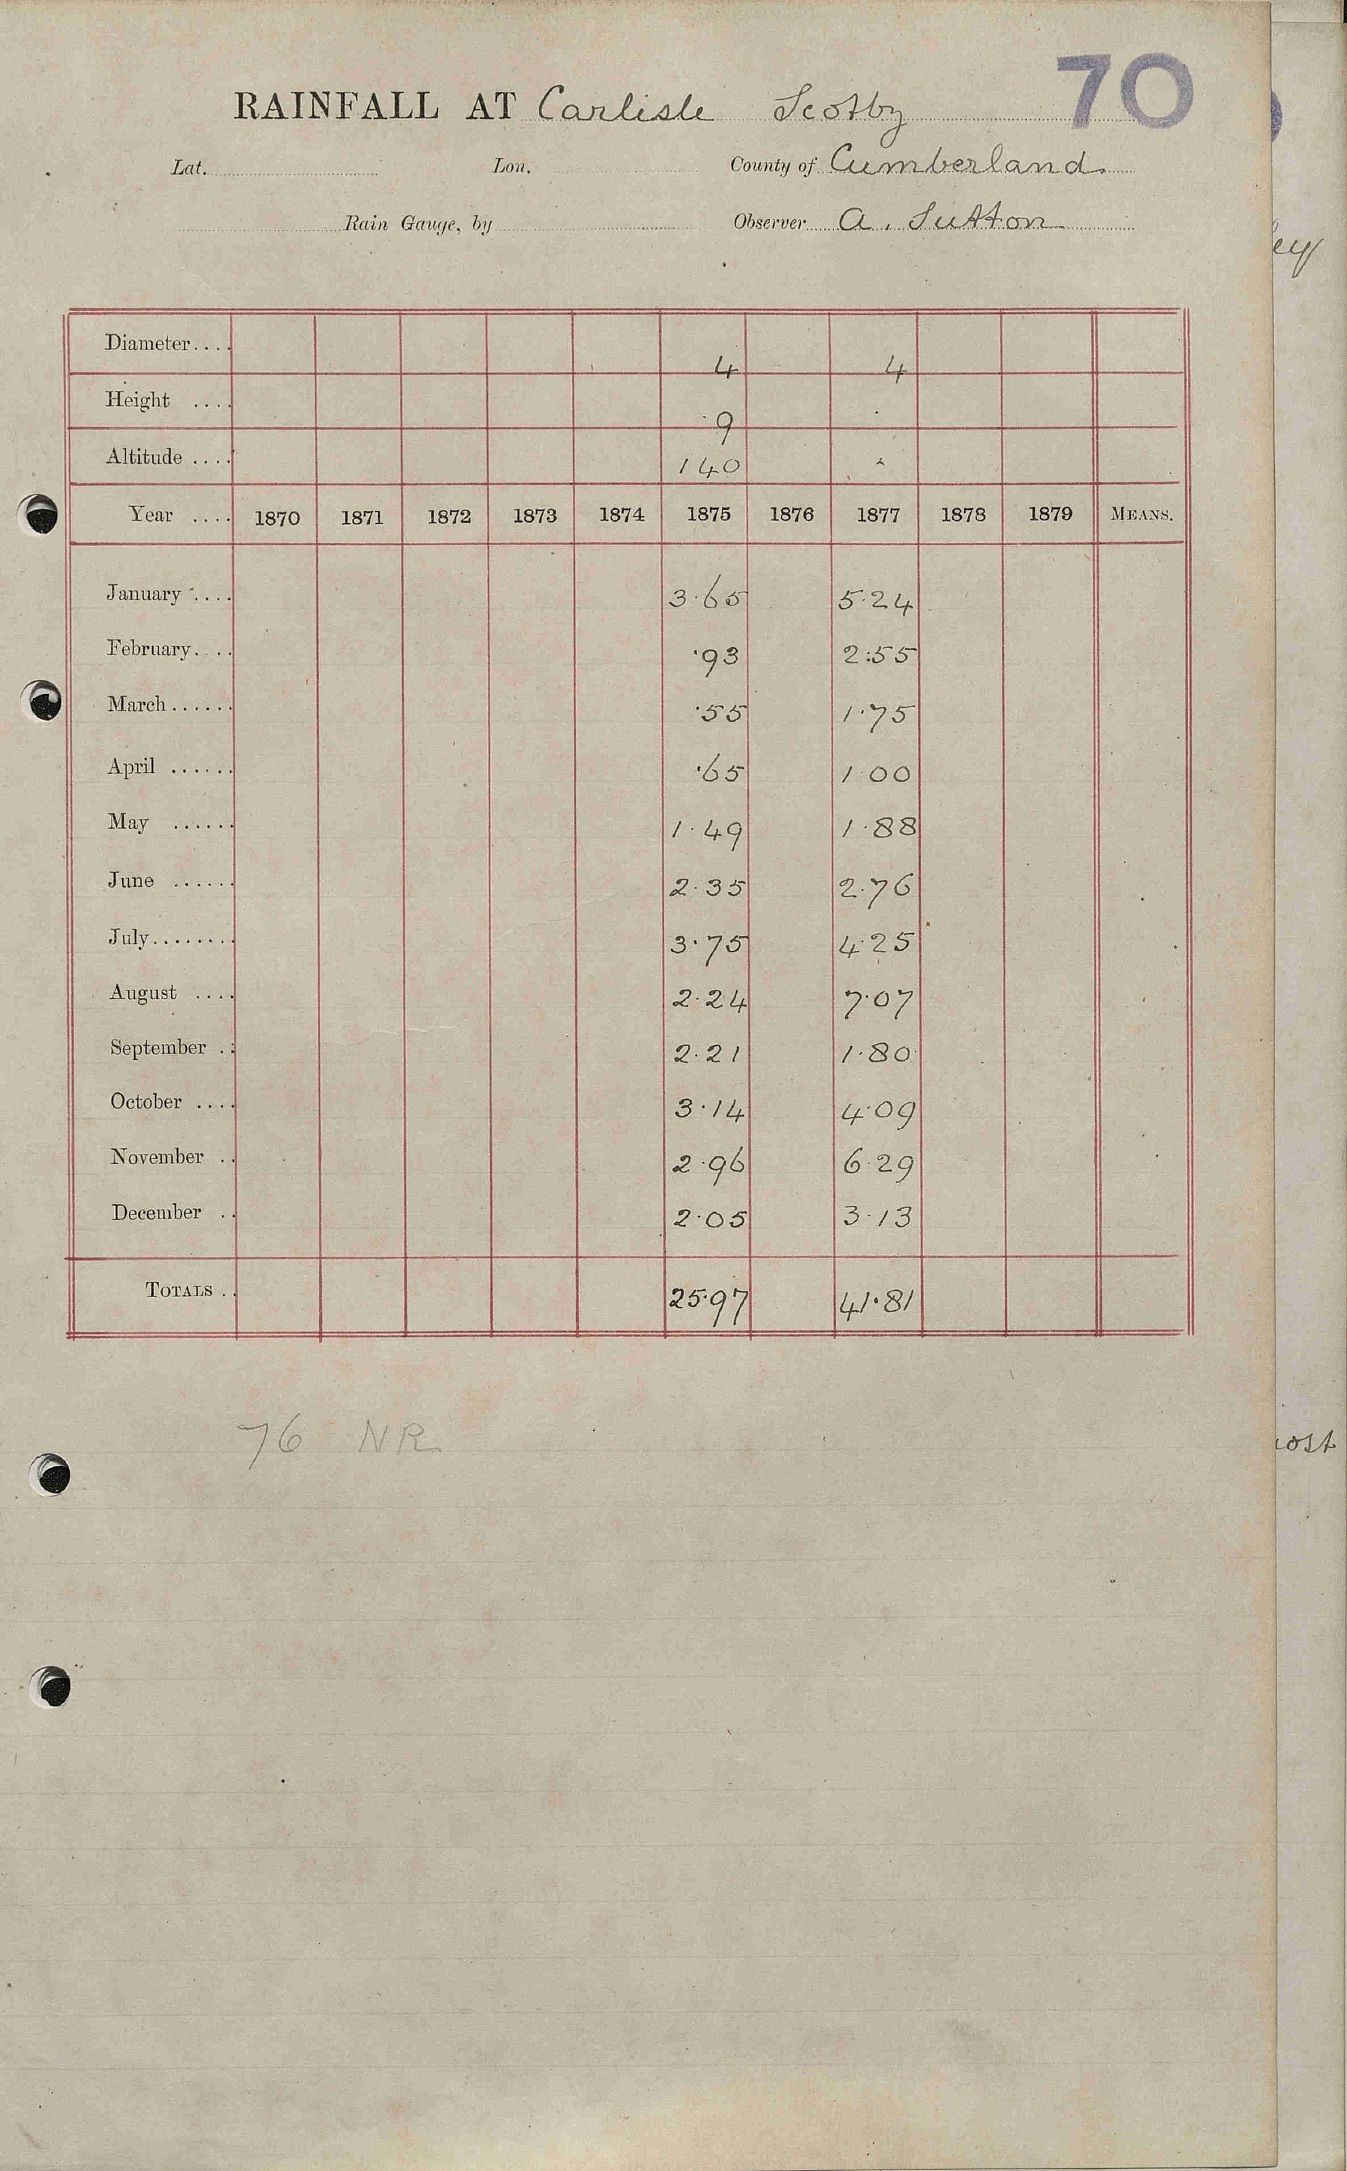 70
RAINFALL AT Carlisle Scotby
Lat. Lon. County of Cumberland
Rain Gauge, by Observer A. Sutton
Diameter.... 4 4
Height .... 9
Altitude .... 140
Year .... 1870 1871 1872 1873 1874 1875 1876 1877 1878 1879 MEANS.
January .... 3.65 5.24
February.... .93 2.55
March...... .55 1.75
April ...... .65 1.00
May ...... 1.49 1.88
June ...... 2.35 2.76
July........ 3.75 4.25
August .... 2.24 7.07
September .. 2.21 1.80
October .... 3.14 4.09
November .. 2.96 6.29
December .. 2.05 3.13
TOTALS .. 25.97 41.81
76 NR